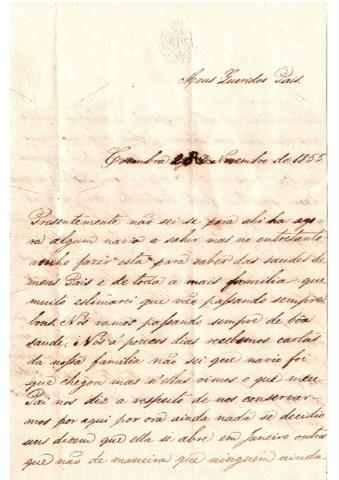 Meus Queridos Pais.
Coimbra 28 de Novembro de 1855.
Presentemente não sei se para ahi ha ago-
ra algum navio a sahir mas no entretanto
venho fazer esta para saber das saudes de
meus Pais e de toda a mais familia que
muito estimarei que vão passando sempre
bons. Nós vamos passando sempre de bôa
saude. Nós á poucos dias recebemos cartas
da nossa familia não sei que navio foi
que chegou mas n'ellas vimos o que meu
Pai nos diz a respeito de nos conservar-
mos por aqui por ora ainda nada se decidio
uns dizem que ella se abre em Janeiro outros
que não de maneira que ninguem ainda